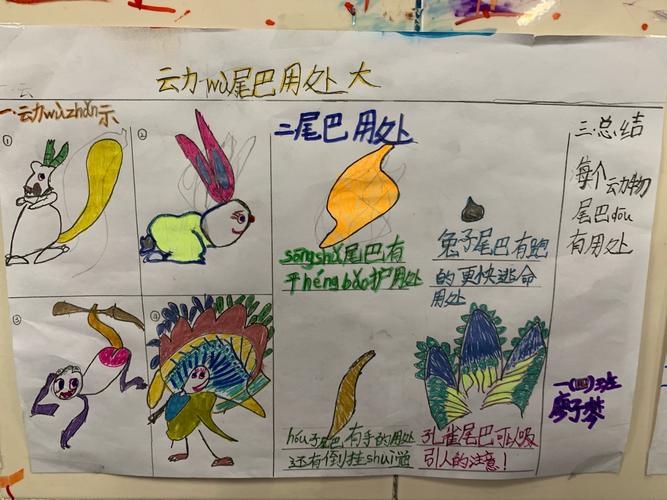 动wù尾巴用处大
一.动wùzhǎn示
①
②
③
④
二尾巴用处
sōngshǔ尾巴有
平héngbǎo护用处
兔子尾巴有跑
的更快逃命
用处
hóu子尾巴有手的用处
还有倒挂shuì
孔雀尾巴可以吸
引人的注意!
三.总结
每个动物
尾巴dōu
有用处
一(四)班
廖子梦